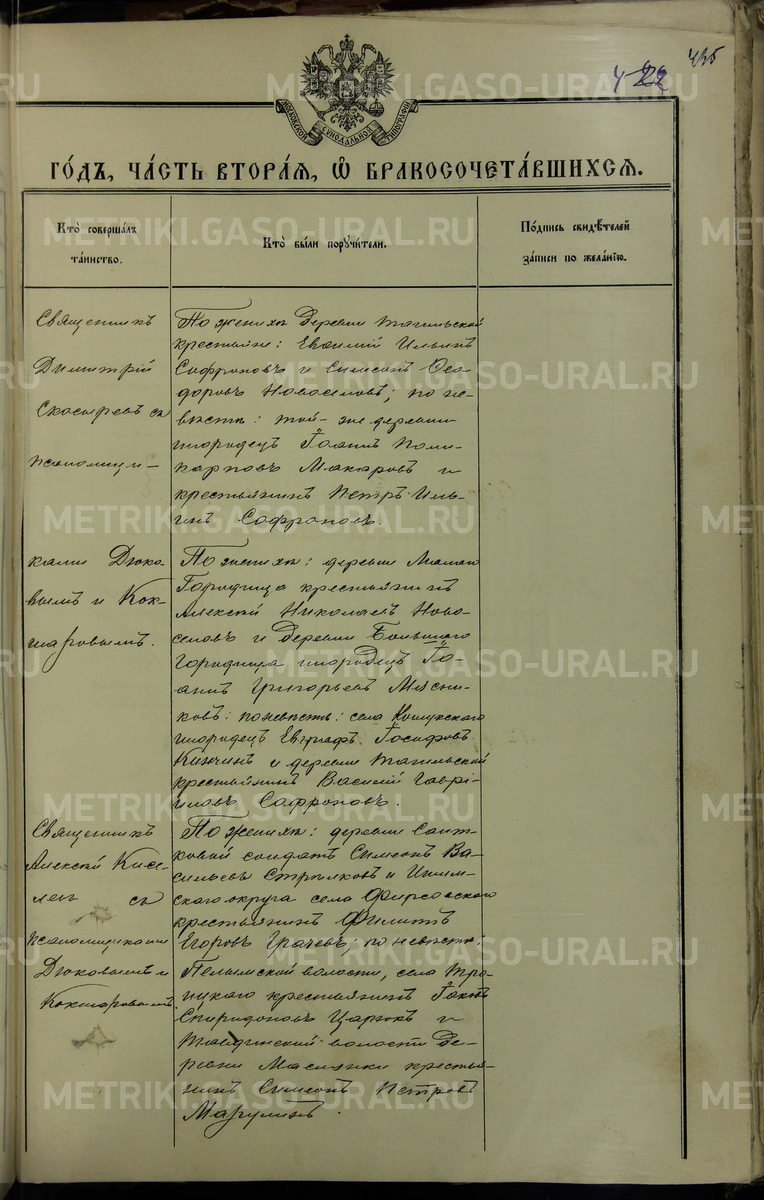 435
422
МОСКОВСКОЙ СѴНОДАЛЬНОЙ ТИПОГРАФІИ
ГО́ДЪ, ЧА́СТЬ ВТОРА́Я, Ѽ БРАКОСОЧЕТА́ВШИХСЯ.
Кто̀ соверша́лъ
та́инство.
Кто̀ бы́ли порꙋчи́тели.
По́дпись свидѣ́телей
за́писи по жела́нїю.
Священникъ
Димитрій
Скосыревъ съ
псаломщи-
ками Дюко-
вымъ и Кок-
шаровымъ.
По женихѣ деревни Тагильской
крестьяне: Евѳимій Ильинъ
Софроновъ и Симеонъ Ѳео-
доровъ Новоселовъ; по не-
вѣстѣ: той-же деревни
инородецъ Іоаннъ Поли-
карповъ Макаровъ и
крестьянинъ Петръ Иль-
инъ Софроновъ.
По женихѣ: деревни Малаго
Городища крестьянинъ
Алексѣй Николаевъ Ново-
селовъ и деревни Большаго
Городища инородецъ Іо-
аннъ Григорьевъ Мясни-
ковъ: по невѣстѣ: села Кошукскаго
инородецъ Евграфъ Іосифовъ
Кинчинъ и деревни Тагильской
крестьянинъ Василій Гаврі-
иловъ Софроновъ.
Священникъ
Алексѣй Кисе-
левъ съ
псаломщиками
Дюковымъ и
Кокшаровымъ.
По женихѣ: деревни Саит-
ковой солдатъ Симеонъ Ва-
сильевъ Стрѣлковъ и Ишим-
скаго округа села Фирсовскаго
крестьянинъ Филиппъ
Егоровъ Грачевъ; по невѣстѣ:
Пелымской волости, села Тро-
ицкаго крестьянинъ
Спиридоновъ и
Тавдинской волости де-
ревни крестья-
нинъ Симеонъ Петровъ
Марулинъ.
METRIKI.GASO-URAL.RU